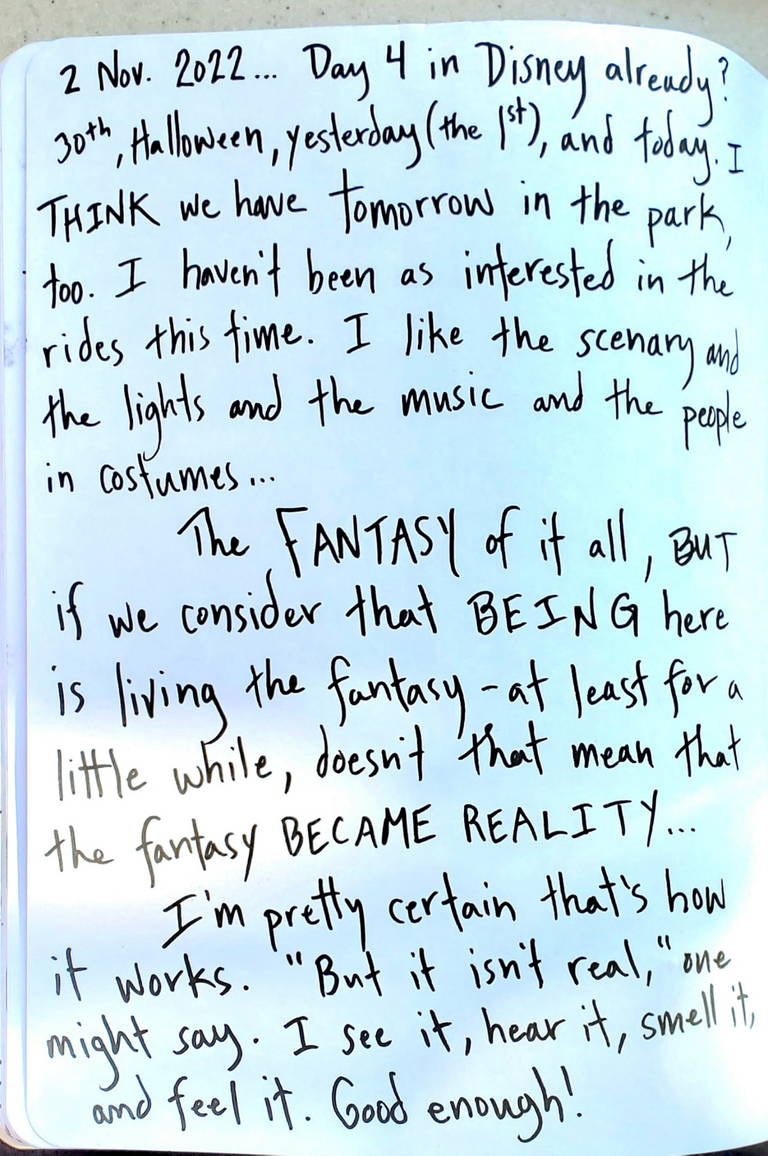 2 Nov. 2022... Day 4 in Disney already?
30th, Halloween, yesterday (the 1st), and today. I
THINK we have tomorrow in the park,
too. I haven't been as interested in the
rides this time. I like the scenary and
the lights and the music and the people
in costumes...
The FANTASY of it all, BUT
if we consider that BEING here
is living the fantasy - at least for a
little while, doesn't that mean that
the fantasy BECAME REALITY...
I'm pretty certain that's how
it works. "But it isn't real," one
might say. I see it, hear it, smell it,
and feel it. Good enough!